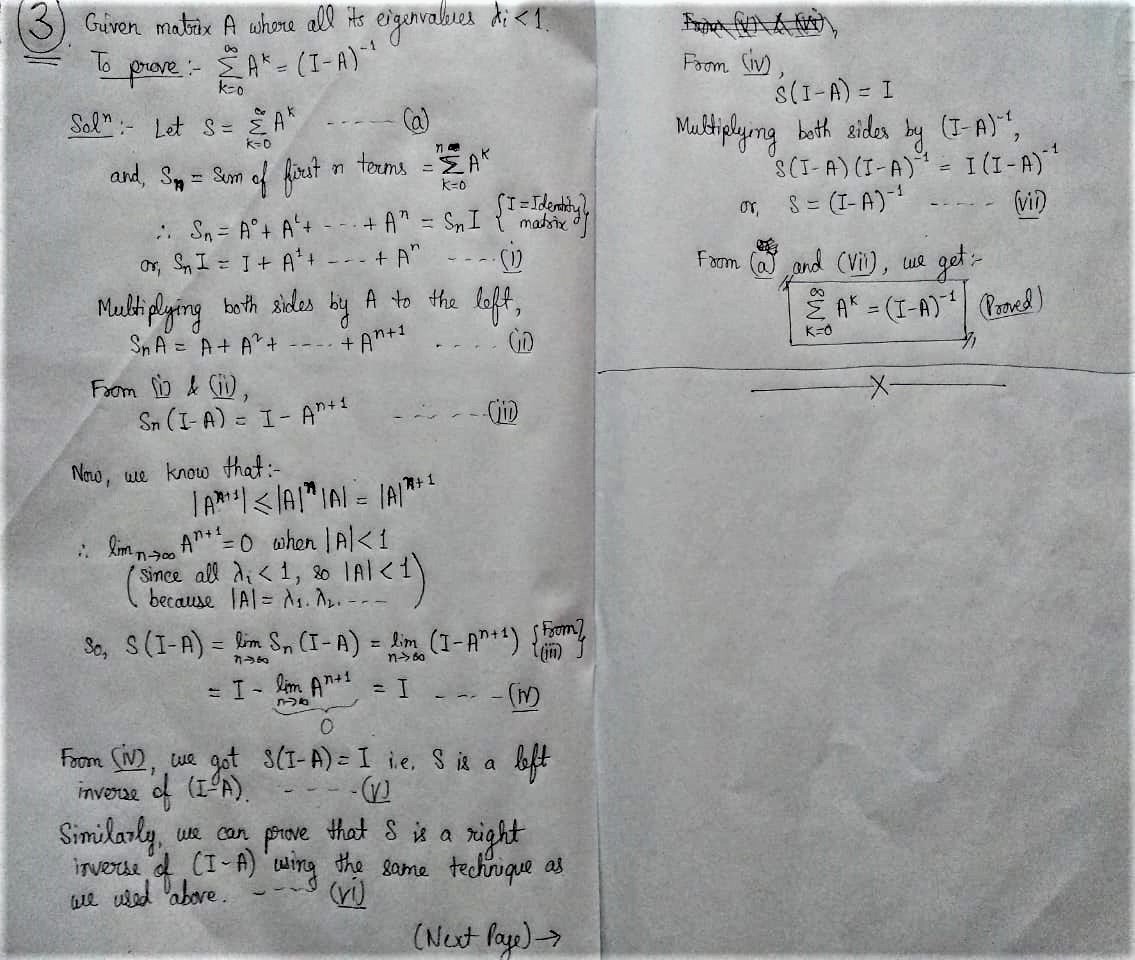 (3) Given matrix A where all its eigenvalues λi < 1.
To prove :- ∑_{k=0}^{∞} A^k = (I-A)^{-1}
Solⁿ :- Let S = ∑_{k=0}^{∞} A^k ------ (a)
and, Sn = Sum of first n terms = ∑_{k=0}^{n} A^k
∴ Sn = A^0 + A^1 + ---- + A^n = Sn I {I = Identity matrix}
or, Sn I = I + A^1 + ---- + A^n ---- (i)
Multiplying both sides by A to the left,
Sn A = A + A^2 + ---- + A^{n+1} ---- (ii)
From (i) & (ii),
Sn (I-A) = I - A^{n+1} ----- (iii)
Now, we know that :-
|A^{n+1}| ≤ |A|^n |A| = |A|^{n+1}
∴ lim_{n→∞} A^{n+1} = 0 when |A| < 1
(since all λi < 1, so |A| < 1
because |A| = λ1. λ2. ----)
So, S(I-A) = lim_{n→∞} Sn (I-A) = lim_{n→∞} (I-A^{n+1}) {From (iii)}
= I - lim_{n→∞} A^{n+1} = I ---- (iv)
0
From (iv), we got S(I-A) = I i.e. S is a left
inverse of (I-A). ---- (v)
Similarly, we can prove that S is a right
inverse of (I-A) using the same technique as
we used above. ---- (vi)
(Next Page) →
From (v) & (vi),
From (iv),
S(I-A) = I
Multiplying both sides by (I-A)^{-1},
S(I-A)(I-A)^{-1} = I(I-A)^{-1}
or, S = (I-A)^{-1} ----- (vii)
From (a) and (vii), we get :-
∑_{k=0}^{∞} A^k = (I-A)^{-1} (Proved)